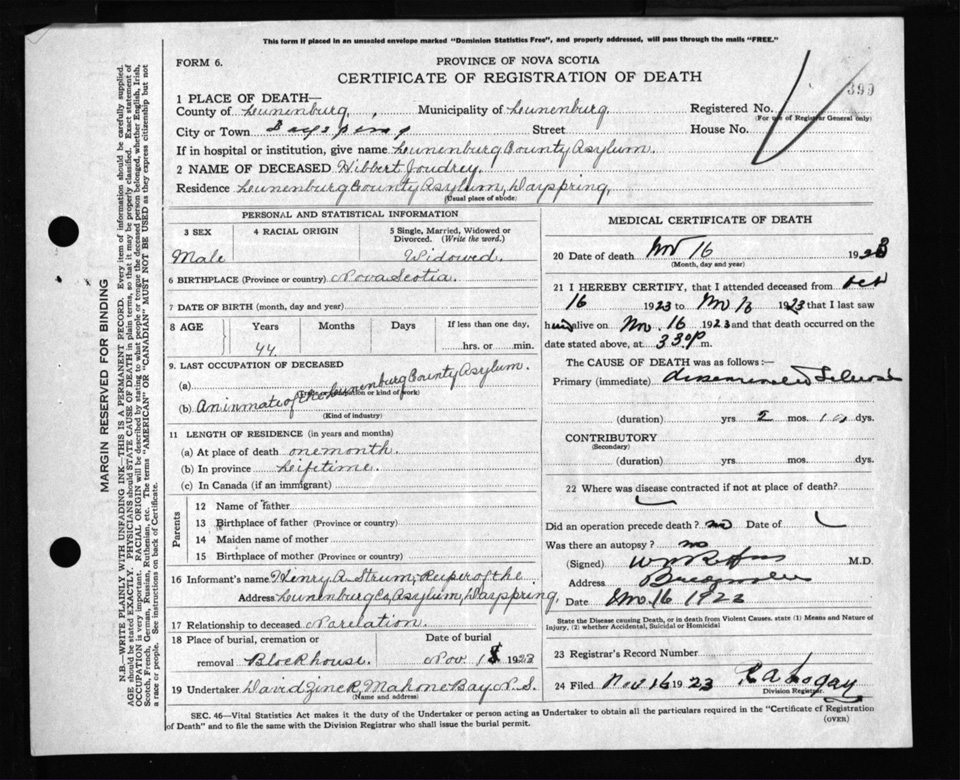 This form if placed in an unsealed envelope marked "Dominion Statistics Free", and properly addressed, will pass through the mails "FREE."
FORM 6.
PROVINCE OF NOVA SCOTIA
CERTIFICATE OF REGISTRATION OF DEATH
399
1 PLACE OF DEATH—
County of Lunenburg, Municipality of Lunenburg Registered No.
(For use of Registrar General only)
City or Town Dayspring Street House No.
If in hospital or institution, give name Lunenburg County Asylum.
2 NAME OF DECEASED Hibbert Joudrey.
Residence Lunenburg County Asylum, Dayspring,
(Usual place of abode)
PERSONAL AND STATISTICAL INFORMATION
3 SEX 4 RACIAL ORIGIN 5 Single, Married, Widowed or Divorced. (Write the word.)
Male Widowed.
6 BIRTHPLACE (Province or country) Nova Scotia.
7 DATE OF BIRTH (month, day and year)
8 AGE Years Months Days If less than one day,
44 hrs. or min.
9. LAST OCCUPATION OF DECEASED
(a)
(b) An inmate of the Lunenburg County Asylum.
(Kind of industry)
11 LENGTH OF RESIDENCE (in years and months)
(a) At place of death one month.
(b) In province Lifetime.
(c) In Canada (if an immigrant)
Parents
12 Name of father
13 Birthplace of father (Province or country)
14 Maiden name of mother
15 Birthplace of mother (Province or country)
16 Informant's name Henry A. Strum, Keeper of the
Address Lunenburg Co, Asylum, Dayspring,
17 Relationship to deceased No relation.
18 Place of burial, cremation or Date of burial
removal Blockhouse. Nov. 18 1923
19 Undertaker David Zinck, Mahone Bay, N. S.
(Name and address)
MEDICAL CERTIFICATE OF DEATH
20 Date of death Nov 16 1923
(Month, day and year)
21 I HEREBY CERTIFY, that I attended deceased from Oct
16 1923 to Nov 16 1923 that I last saw
him alive on Nov. 16 1923 and that death occurred on the
date stated above, at 330 P m.
The CAUSE OF DEATH was as follows:—
Primary (immediate) disseminated Sclerosis
(duration) yrs 2 mos. 10 dys.
CONTRIBUTORY
(Secondary)
(duration) yrs. mos. dys.
22 Where was disease contracted if not at place of death?
Did an operation precede death? no Date of
Was there an autopsy? no
(Signed) M.D.
Address Bridgewater
Date Nov. 16 1923
State the Disease causing Death, or in death from Violent Causes, state (1) Means and Nature of Injury, (2) whether Accidental, Suicidal or Homicidal
23 Registrar's Record Number
24 Filed Nov 16 1923
Division Registrar.
SEC. 46—Vital Statistics Act makes it the duty of the Undertaker or person acting as Undertaker to obtain all the particulars required in the "Certificate of Registration
of Death" and to file the same with the Division Registrar who shall issue the burial permit.
(OVER)
MARGIN RESERVED FOR BINDING
N.B.—WRITE PLAINLY WITH UNFADING INK—THIS IS A PERMANENT RECORD. Every item of information should be carefully supplied.
AGE should be stated EXACTLY. PHYSICIANS should STATE CAUSE OF DEATH in plain terms, so that it may be properly classified. Exact statement of
OCCUPATION is very important. RACIAL ORIGIN will be described by stating to what people or tongue the deceased person belonged, whether English, Irish,
Scotch, French, German, Russian, Ruthenian, etc. The terms "AMERICAN" OR "CANADIAN" MUST NOT BE USED as they express citizenship but not
a race or people. See instructions on back of Certificate.